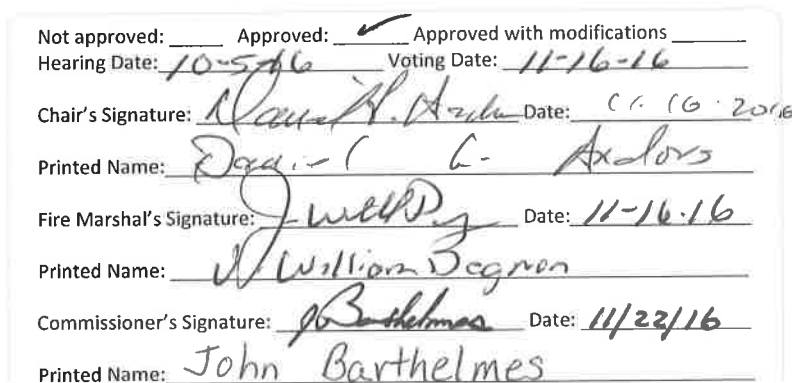 Not approved: Approved: ✓ Approved with modifications
Hearing Date: 10-5-16 Voting Date: 11-16-16
Chair's Signature: Date: 11.16.2016
Printed Name:
Fire Marshal's Signature: Date: 11-16-16
Printed Name: J. William Degnan
Commissioner's Signature: JBarthelmes Date: 11/22/16
Printed Name: John Barthelmes